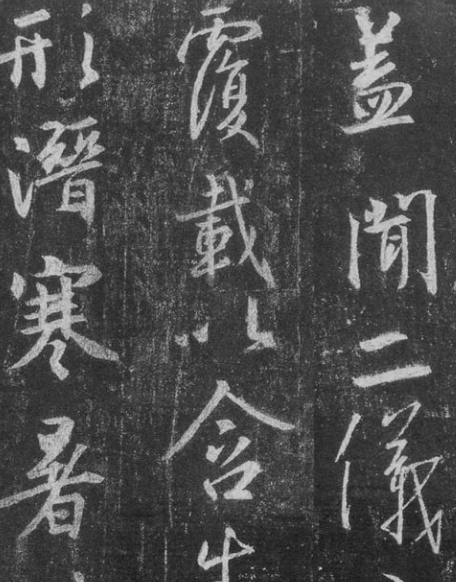 盖闻二仪
覆載以含生
形潛寒暑